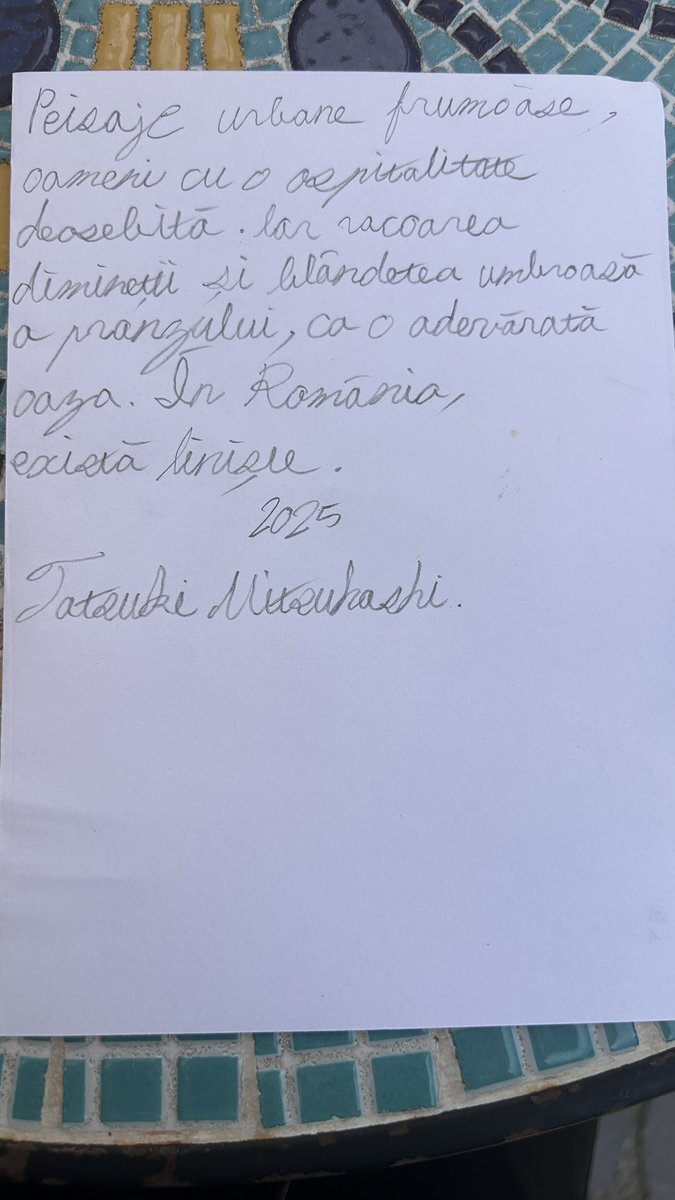 Peisaje urbane frumoase,
oameni cu o ospitalitate
deosebită. Iar racoarea
dimineții și blândețea umbroasă
a prânzului, ca o adevărată
oaza. În România,
există liniște.
2025
Tatsuki Mitsuhashi.